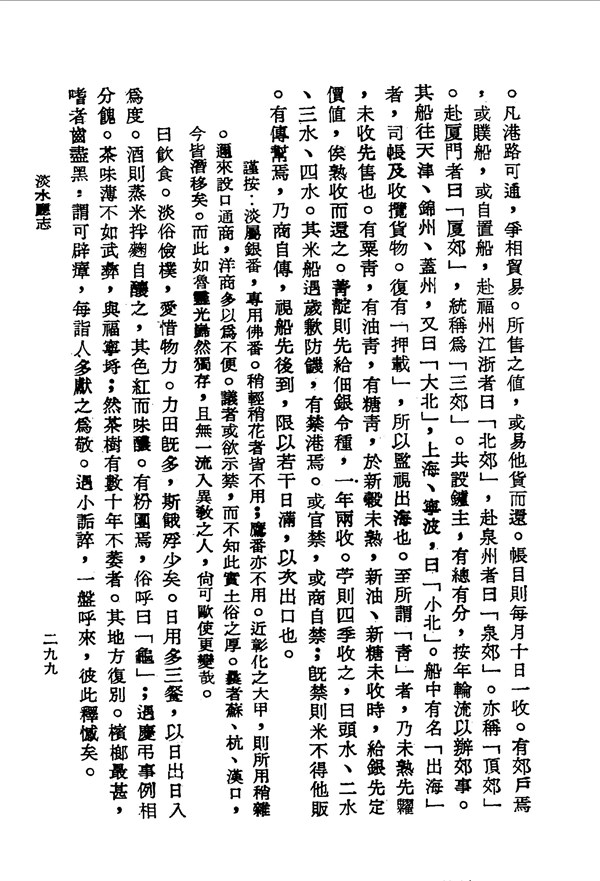 。凡港路可通，爭相貿易。所售之值，或易他貨而還。帳目則每月十日一收。有郊戶焉
，或贌船，或自置船，赴福州江浙者曰「北郊」，赴泉州者曰「泉郊」。亦稱「頂郊」
。赴厦門者曰「厦郊」，統稱爲「三郊」。共設鑪主，有總有分，按年輪流以辦郊事。
其船往天津、錦州、蓋州，又曰「大北」，上海、寧波，曰「小北」。船中有名「出海」
者，司帳及收攬貨物。復有「押載」，所以監視出海也。至所謂「青」者，乃未熟先糶
，未收先售也。有粟青，有油青，有糖青，於新穀未熟，新油、新糖未收時，給銀先定
價值，俟熟收而還之。菁靛則先給佃銀令種，一年兩收。苧則四季收之，曰頭水、二水
、三水、四水。其米船遇歲歉防饑，有禁港焉。或官禁，或商自禁；旣禁則米不得他販
。有傳幫焉，乃商自傳，視船先後到，限以若干日滿，以次出口也。
謹按：淡屬銀番，專用佛番。稍輕稍花者皆不用；鷹番亦不用。近彰化之大甲，則所用稍雜
。邇來設口通商，洋商多以爲不便。議者或欲示禁，而不知此實土俗之厚。曩者蘇、杭、漢口，
今皆潛移矣。而此如魯靈光巋然獨存，且無一流入異敎之人，尙可歐使更變哉。
曰飲食。淡俗儉樸，愛惜物力。力田旣多，斯餓殍少矣。日用多三餐，以日出日入
爲度。酒則蒸米拌麯自釀之，其色紅而味醲。有粉團焉，俗呼曰「龜」；遇慶弔事例相
分餽。茶味薄不如武彝，與福寧埒；然茶樹有數十年不萎者。其地方復別。檳榔最甚，
嗜者齒盡黑，謂可辟瘴，每詣人多獻之爲敬。遇小詬誶，一盤呼來，彼此釋憾矣。
淡水廳志
二九九